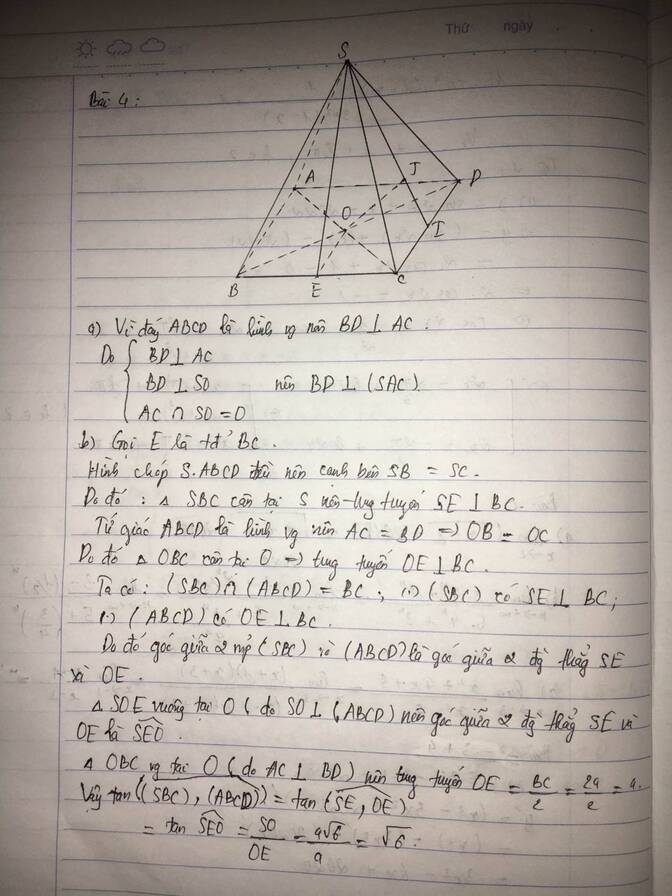 Thứ ngày
S
Bài 4:
A J D
O
I
B E C
a) Vì đáy ABCD là hình vg nên BD ⊥ AC.
Do { BD ⊥ AC
BD ⊥ SO nên BD ⊥ (SAC).
AC ∩ SO = O
b) Gọi E là tđ' BC.
Hình chóp S.ABCD đều nên cạnh bên SB = SC.
Do đó: △ SBC cân tại S nên trug tuyến SE ⊥ BC.
Tứ giác ABCD là hình vg nên AC = BD => OB = OC
Do đó △ OBC cân tại O => trug tuyến OE ⊥ BC.
Ta có: (SBC) ∩ (ABCD) = BC; (·) (SBC) có SE ⊥ BC;
(·) (ABCD) có OE ⊥ BC.
Do đó góc giữa 2 mp' (SBC) và (ABCD) là góc giữa 2 đg` thẳg SE
và OE.
△ SOE vuông tại O (do SO ⊥ (ABCD) nên góc giữa 2 đg` thẳg SE và
OE là SEO.
△ OBC vg tại O (do AC ⊥ BD) nên trug tuyến OE = BC/2 = 2a/2 = a.
Vậy tan((SBC), (ABCD)) = tan(SE, OE)
= tan SEO = SO/OE = a√6/a = √6.